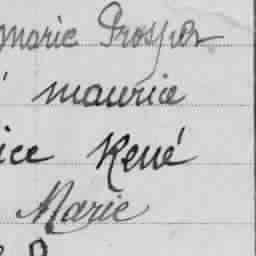 Marie Prosper
maurice
ice René
Marie